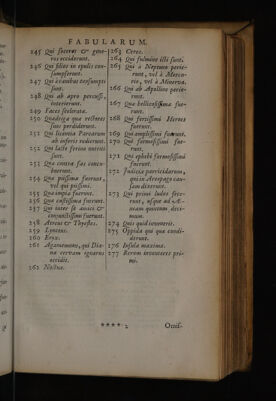 FABULARUM.
245 Qui soceros & gene-
ros occiderunt.
246 Qui filios in epulis con-
sumpserunt.
247 Qui à canibus consumpti
sunt.
248 Qui ab apro percussi,
interierunt.
249 Faces sceleratæ.
250 Quadrigæ quæ rectores
suos perdiderunt.
251 Qui licentia Parcarum
ab inferis redierunt.
252 Qui lacte ferino nutriti
sunt.
253 Quæ contra fas concu-
buerunt.
254 Quæ piissimæ fuerunt,
vel qui piissimi.
255 Quæ impiæ fuerunt.
256 Quæ castissimæ fuerunt.
257 Qui inter se amici &
conjunctissimi fuerunt.
258 Atreus & Thyestes.
259 Lyncus.
260 Eryx.
261 Agamemnon, qui Dia-
næ cervam ignarus
occidit.
262 Noctua.
263 Ceres.
264 Qui fulmine icti sunt.
265 Qui à Neptuno perie-
runt, vel à Mercu-
rio, vel à Minerva.
266 Qui ab Apolline perie-
runt.
267 Quæ bellicosissimæ fue-
runt.
268 Qui fortissimi Heroes
fuerunt.
269 Qui amplissimi fuerunt.
270 Qui formosissimi fue-
runt.
271 Qui ephebi formosissimi
fuerunt.
272 Judicia parricidarum,
qui in Areopago cau-
sam dixerunt.
273 Qui primi ludos fece-
runt, usque ad Æ-
neam quintum deci-
mum.
274 Quis quid invenerit.
275 Oppida qui quæ condi-
derunt.
276 Insulæ maximæ.
277 Rerum inventores pri-
mi.
**** 2